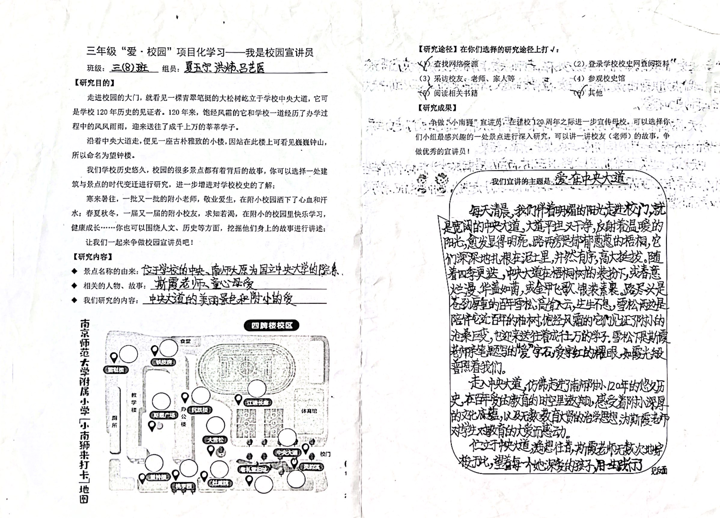 三年级“爱·校园”项目化学习——我是校园宣讲员
班级：三(8)班 组员：
【研究目的】
走进校园的大门，就看见一棵青翠笔挺的大松树屹立于学校中央大道，它可
是学校120年历史的见证者。120年来，饱经风霜的它和学校一道经历了办学过
程中的风风雨雨，迎来送往了成千上万的莘莘学子。
沿着中央大道走，便见一座古朴雅致的小楼，因站在此楼上可看见巍巍钟山，
所以命名为望钟楼。
我们学校历史悠久，校园的很多景点都有着背后的故事，你可以选择一处建
筑与景点的时代变迁进行研究，进一步增进对学校校史的了解；
寒来暑往，一批又一批的附小老师，敬业爱生，在附小校园洒下了心血和汗
水；春夏秋冬，一届又一届的附小校友，求知若渴，在附小的校园里快乐学习，
健康成长……你也可以围绕人文、历史等方面，挖掘他们身上的故事进行讲述；
让我们一起来争做校园宣讲员吧！
【研究内容】
◆ 景点名称的由来：位于学校的中央、南师大原为国立中央大学的
◆ 相关的人物、故事：斯霞老师、童心母爱
◆ 我们研究的内容：中央大道的美丽景色和附小的爱
南京师范大学附属小学“小南狮来打卡”地图
四牌楼校区
食堂
教学楼
办公楼
厕所
体育馆
校门
【研究途径】在你们选择的研究途径上打√：
(1) 查找网络资源
(2) 登录学校校史网查阅资料
(3) 采访校友：老师、家人等
(4) 参观校史馆
(5) 阅读相关书籍
(6) 其他
【研究成果】
争做“小南狮”宣讲员，在建校120周年之际进一步宣传母校，可以选择你
们小组最感兴趣的一处景点进行深入研究，可以讲一讲校友（老师）的故事，争
做优秀的宣讲员！
我们宣讲的主题是 爱在中央大道
每天清晨，我们伴着明媚的阳光走进校门，就
是宽阔的中央大道，大道平坦又干净，反射着温暖的
阳光，愈发显得明亮。路两旁是郁郁葱葱的梧桐，它
们深深地扎根在泥土里，并然有序，高大挺拔，随
着四季更迭，中央大道在梧桐树的装扮下，或春意
烂漫，华盖如荫，或金甲飞歌，银装素裹。路尽头是
苍劲厚重的百年雪松，高耸入云，生生不息，雪松两边是
陪伴它近百年的柏树，饱经风霜的它们见证了附小的
沧桑巨变，也迎来送往着成千上万的学子。雪松下是斯霞
老师亲笔题写的“爱”字石，爱字红的耀眼，如霞光般
普照着我们。
走入中央大道，仿佛走进了南师附小120年的悠久历
史，在百年爱的教育的时空里遨游，感受着附小深厚
的文化底蕴，以及无数教育大贤的治学思想，为斯霞老师
对学生对教育的大爱而感动。
伫立于中央大道，遥想往昔，斯霞老师无数次地
于此，望着每一个她深爱的孩子，用